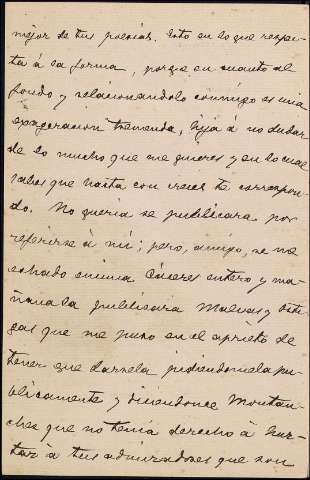 mejor de tus poesías. Esto en lo que respec-
ta á la forma, porque en cuanto al
fondo y relacionándolo conmigo es una
exageración tremenda, hija á no dudar
de lo mucho que me quieres y en lo cual
sabes que hasta con creces te correspon-
do. No quería se publicara por
referirse á mí; pero, amigo, se me
echado encima Cáceres entero y ma-
ñana la publicará Malvas y Orti-
gas que me puso en el aprieto de
tener que darsela pidiendomela pú-
blicamente y diciendonce Montan-
chez que no tenía derecho á hur-
tar á tus admiradores que son